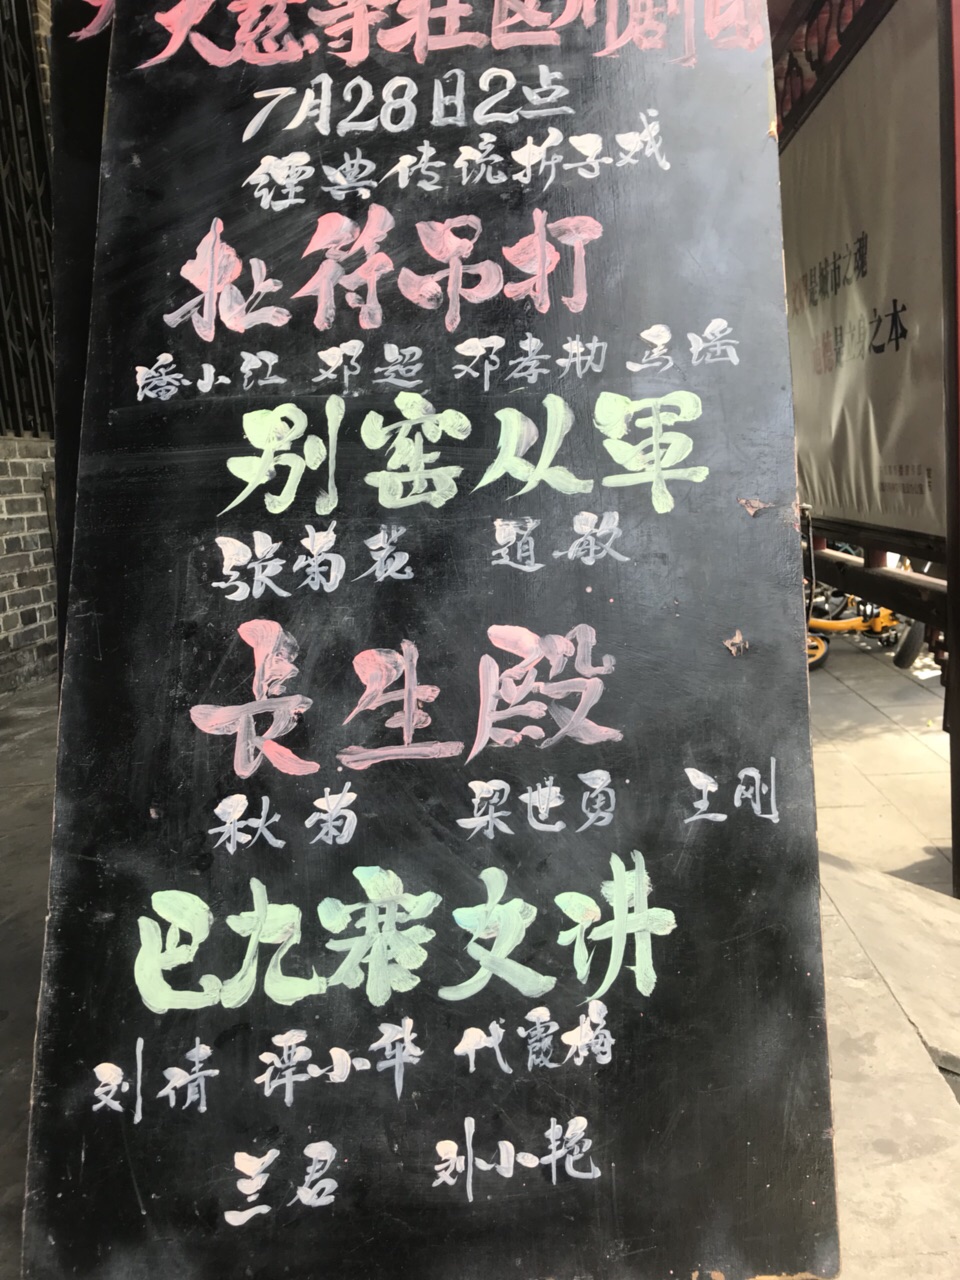 大慈寺社区川剧团
7月28日2点
经典传统折子戏
扯符吊打
潘小红 邓超 邓孝勋 马瑶
别窑从軍
张菊花 赵敏
長生殿
秋菊 梁世勇 王刚
巴九寨文讲
刘倩 谭小华 代霞梅
兰君 刘小艳
是城市之魂
之本